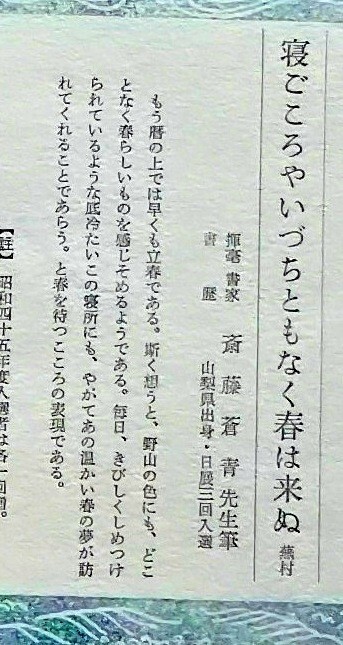 寝ごころやいづちともなく春は来ぬ 蕪村
揮毫 書家 斎藤蒼青先生筆
書歴 山梨県出身・日展三回入選
もう暦の上では早くも立春である。斯く想うと、野山の色にも、どこ
となく春らしいものを感じそめるようである。毎日、きびしくしめつけ
られているような底冷たいこの寝所にも、やがてあの温かい春の夢が訪
れてくれることであらう。と春を待つこころの表現である。
【註】 昭和四十五年度入選者は各一回増。